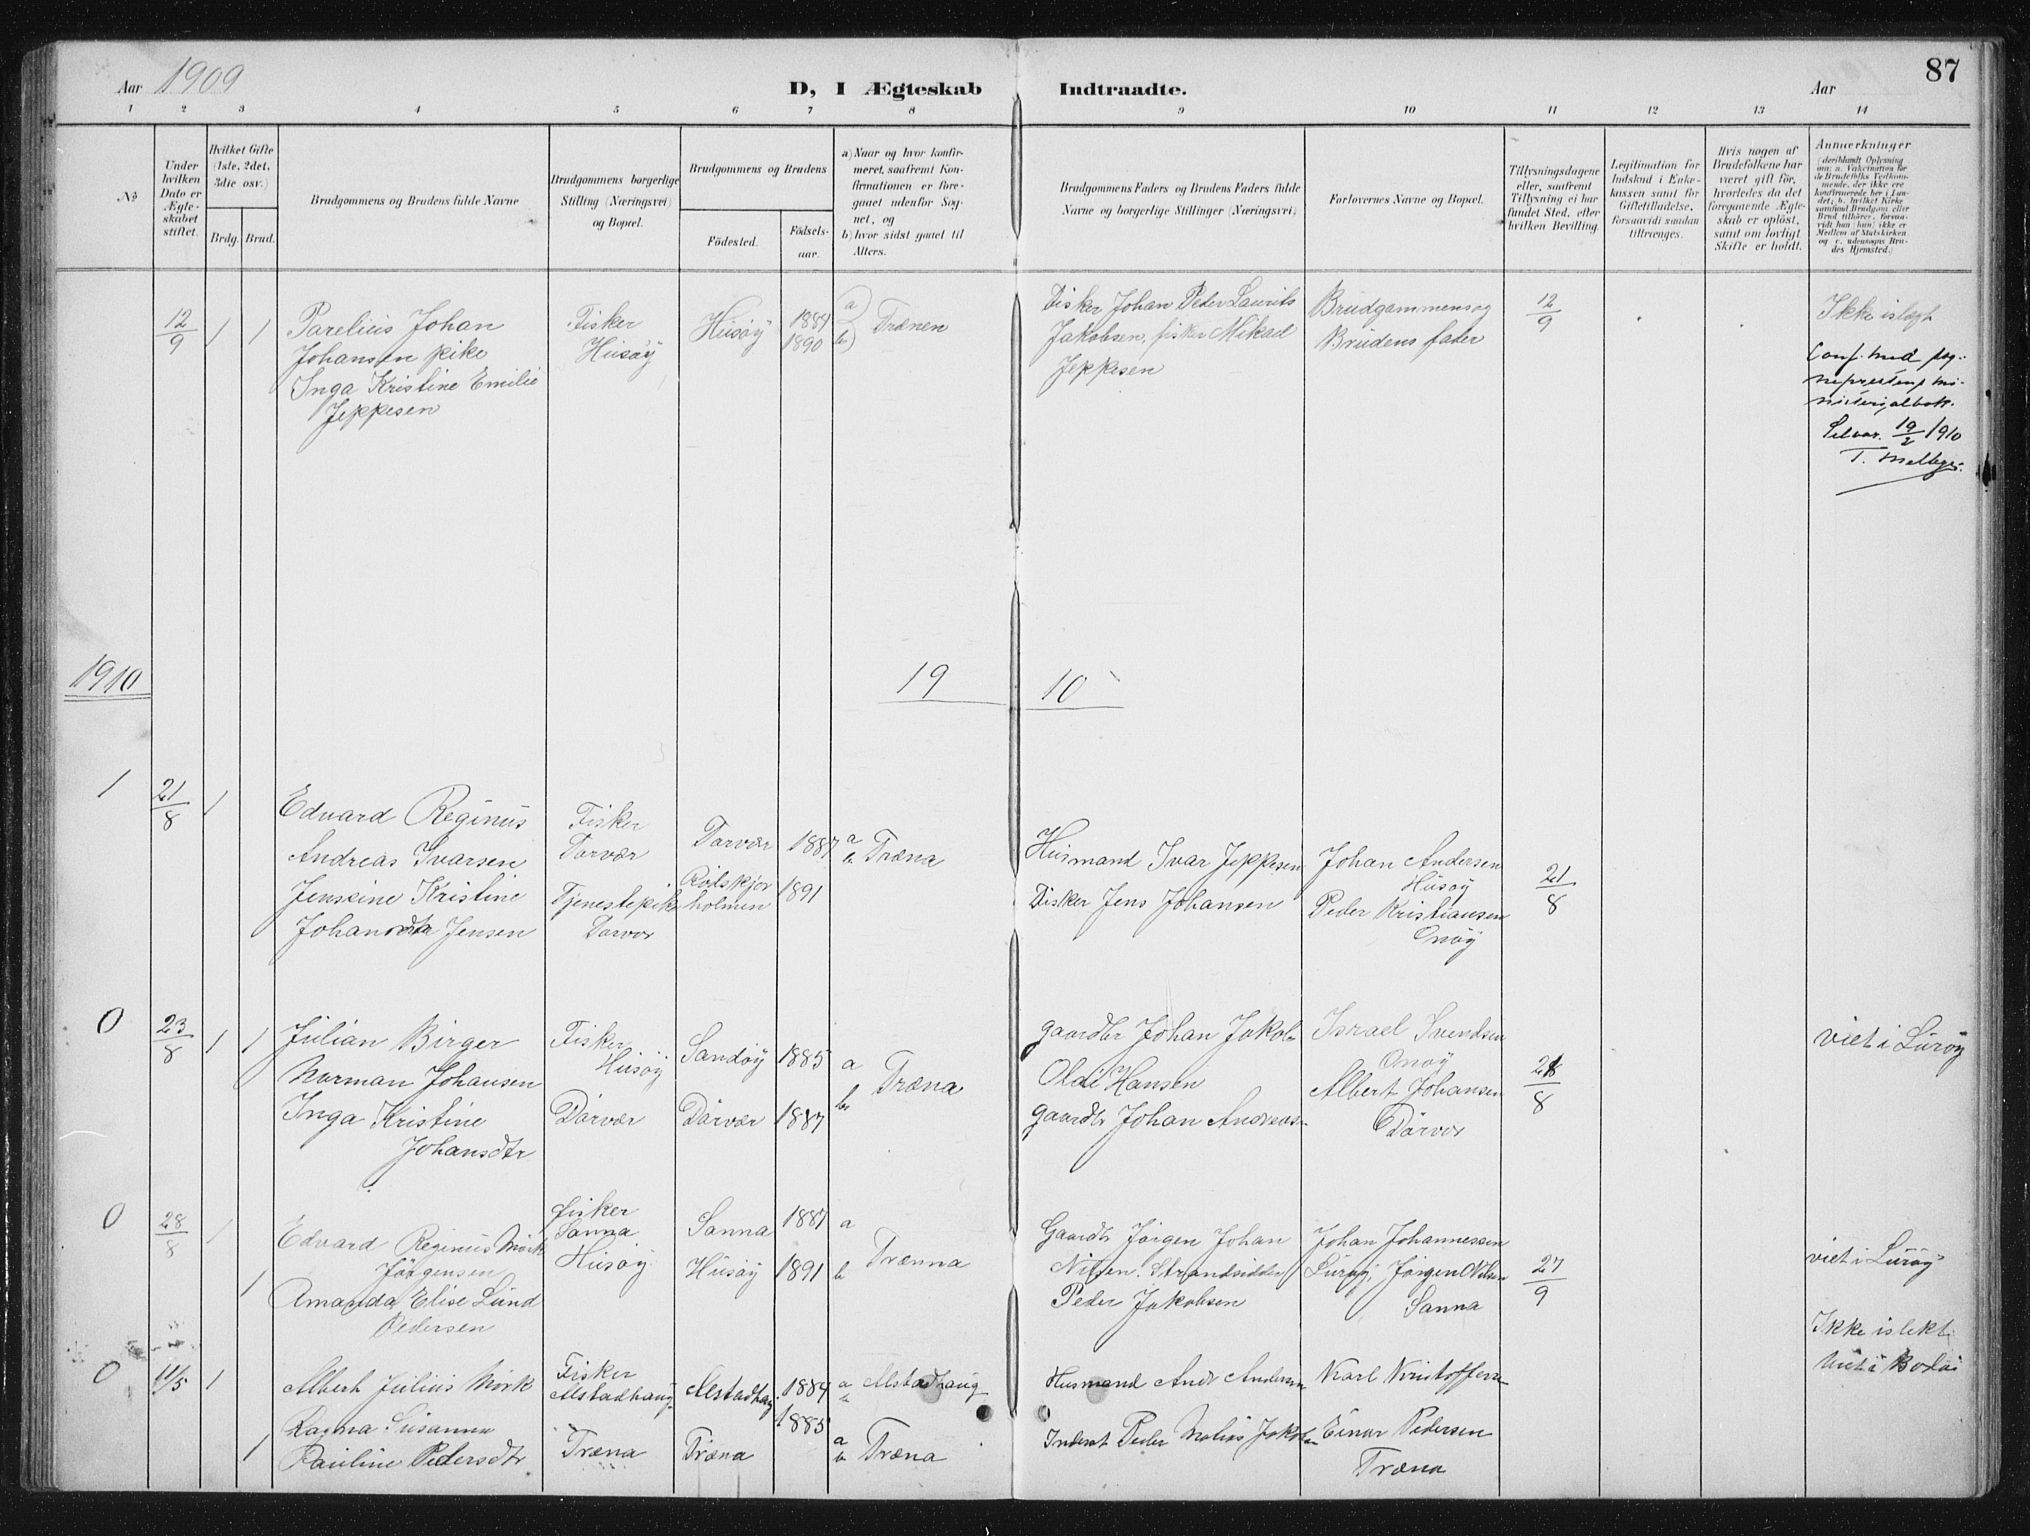 Aar 1909
D, I Ægteskab Indtraadte.
Aar
87
1 2 3 4 5 6 7 8 9 10 11 12 13 14
No
Under hvilken Dato er Ægteskabet stiftet.
Hvilket Gifte (1ste, 2det, 3die osv.)
Brdg. Brud.
Brudgommens og Brudens fulde Navne
Brudgommens borgerlige Stilling (Næringsvei) og Bopæl.
Brudgommens og Brudens
Fødested.
Fødselsaar.
a) Naar og hvor konfirmeret, saafremt Konfirmationen er foregaaet udenfor Sognet, og
b) hvor sidst gaaet til Alters.
Brudgommens Faders og Brudens Faders fulde Navne og borgerlige Stillinger (Næringsvei)
Forlovernes Navne og Bopæl.
Tillysningsdagene eller, saafremt Tillysning ei har fundet Sted, efter hvilken Bevilling.
Legitimation for Indskud i Enkekassen samt for Giftetilladelse, forsaavidt saadan tiltrænges.
Hvis nogen af Brudefolkene har været gift før, hvorledes da det foregaaende Ægteskab er opløst, samt om lovligt Skifte er holdt.
Anmærkninger
(deriblandt Oplysning om: a. Vakcination for de Brudefolks Vedkommende, der ikke ere konfirmerede her i Landet; b. hvilket Kirkesamfund Brudgom eller Brud tilhører, forsaavidt han (hun) ikke er Medlem af Statskirken og c. udensogns Brudes Hjemsted.)
12/9 1 1
Parelius Johan
Johansen pike
Inga Kristine Emilie
Jeppesen
Fisker
Husøy
Husøy
1884
1890
a)
b) Trænen
Fisker Johan Peder Laurits
Jakobsen, fisker Mikael
Jeppesen
Brudgommens og
Brudens fader
12/9
Ikke i slegt
Conf. med sog-
neprestens mi-
nisterialbok.
Selvær. 19/2 1910
1910
19 10
1 21/8 1
Edvard Reginus
Andreas Ivarsen
Jensine Kristine
Johan Jensen
Fisker
Dørvær
Tjenestepike
Dørvær
Dorvær
Rødskjær
holmen
1887
1891
a
b Træna
Husmand Ivar Jeppesen
Fisker Jens Johansen
Johan Andersen
Husøy
Peder Kristiansen
Onøy
21/8
0 23/8 1 1
Julian Birger
Norman Johansen
Inga Kristine
Johansdtr
Fisker
Husøy
Dørvær
Sandøy
Dørvær
1885
1887
a
b Træna
gaardbr Johan Jakob
Oldi Hansen
gaardbr Johan Andreas
Israel Svendsen
Onøy
Albert Johansen
Dørvær
21/8
viet i Lurøy
0 28/8 1
1
Edvard Reginus Mörk
Jørgensen
Amanda Elise Lund
Pedersen
fisker
Sanna
Husøy
Sanna
Husøy
1887
1891
a
b Trænna
Gaardbr Jørgen Johan
Nilsen. Strandsidder
Peder Jakobsen
Johan Johannessen
Lurøy, Jørgen Nilsen
Sanna
27/9
viet i Lurøy
0 11/5 1
1
Albert Julius Mörk
Ragna Susanna
Pauline Pedersdtr
Fisker
Alstadhaug
Træna
Alstadhaug
Træna
1884
1885
a
b Alstadhaug
a
b Træna
Husmand Andr Andersen
Inderst Peder Molias Jakobsen
Karl Kristoffersen
Einar Pedersen
Træna
Ikke i slekt
Viet i Bodø